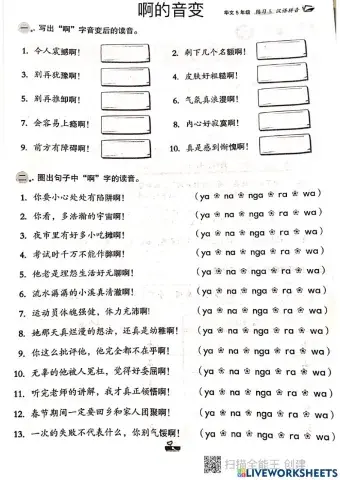 啊的音变
华文5年级 练习五 汉语拼音
一、写出“啊”字音变后的读音。
1. 令人震撼啊!
2. 剩下几个名额啊!
3. 别再犹豫啊!
4. 皮肤好粗糙啊!
5. 别再推卸啊!
6. 气氛真浪漫啊!
7. 会容易上瘾啊!
8. 内心好寂寞啊!
9. 前方有障碍啊!
10. 真是感到惭愧啊!
二、圈出句子中“啊”字的读音。
1. 你要小心处处有陷阱啊! (ya ❀ na ❀ nga ❀ ra ❀ wa)
2. 你看,多浩瀚的宇宙啊! (ya ❀ na ❀ nga ❀ ra ❀ wa)
3. 夜市里有好多小吃摊啊! (ya ❀ na ❀ nga ❀ ra ❀ wa)
4. 考试时千万不能作弊啊! (ya ❀ na ❀ nga ❀ ra ❀ wa)
5. 他老是埋怨生活好无聊啊! (ya ❀ na ❀ nga ❀ ra ❀ wa)
6. 流水潺潺的小溪真清澈啊! (ya ❀ na ❀ nga ❀ ra ❀ wa)
7. 运动员体魄强健,体力充沛啊! (ya ❀ na ❀ nga ❀ ra ❀ wa)
8. 她那天真烂漫的想法,还真是幼稚啊! (ya ❀ na ❀ nga ❀ ra ❀ wa)
9. 你这么批评他,他完全都不在乎啊! (ya ❀ na ❀ nga ❀ ra ❀ wa)
10. 无辜的他被人冤枉,觉得好委屈啊! (ya ❀ na ❀ nga ❀ ra ❀ wa)
11. 听完老师的讲解,我才真正领悟啊! (ya ❀ na ❀ nga ❀ ra ❀ wa)
12. 春节期间一定要回乡和家人团聚啊! (ya ❀ na ❀ nga ❀ ra ❀ wa)
13. 一次的失败不代表什么,你别气馁啊! (ya ❀ na ❀ nga ❀ ra ❀ wa)
扫描全能王 创建
LIVEWORKSHEETS